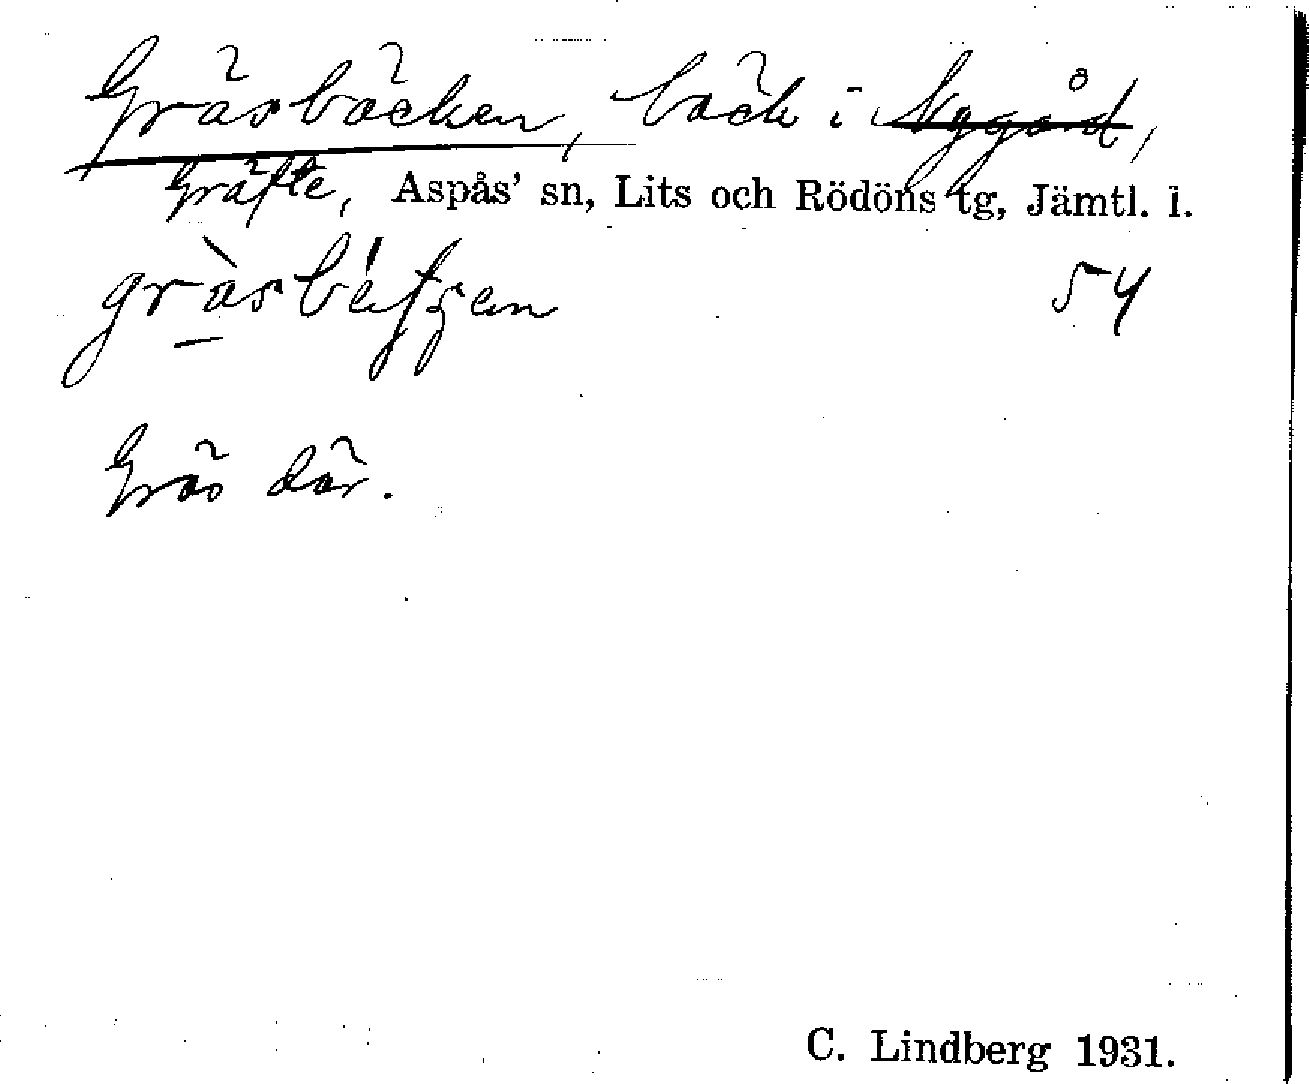 Gräsbäcken, bäck i Nygård,
Gräfte, Aspås' sn, Lits och Rödöns tg, Jämtl. l.
54
Gräs där.
C. Lindberg 1931.